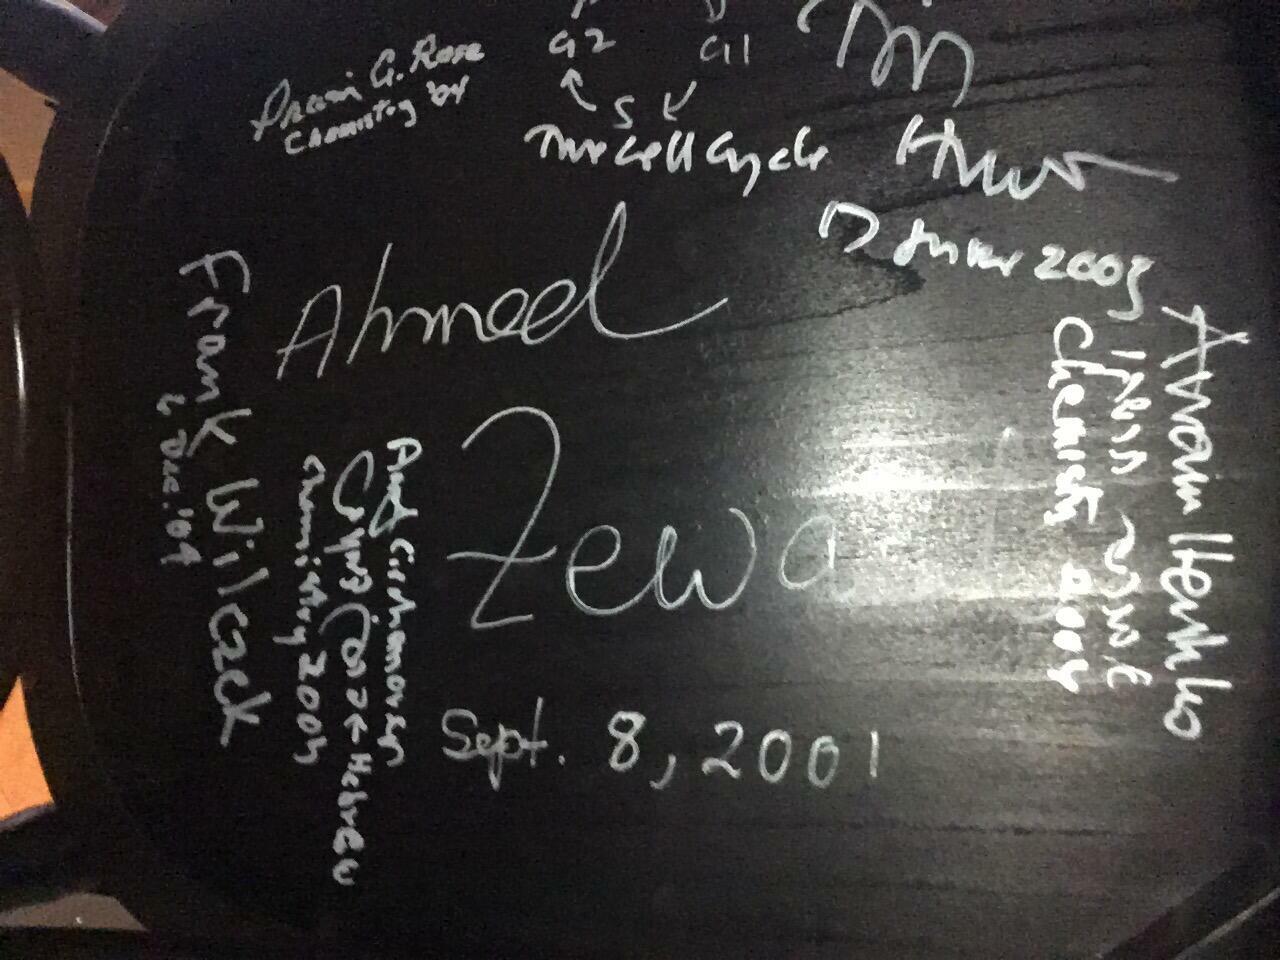 G2 G1
S
The Cell Cycle
Tim
Hunt
2003
Irwin G. Rose
Chemistry '04
Ahmed
Zewa
Sept. 8, 2001
Frank Wilczek
6 Dec. '04
Aaron Ciechanover
Hebrew
Chemistry 2004
Avram Hershko
Chemistry 2004